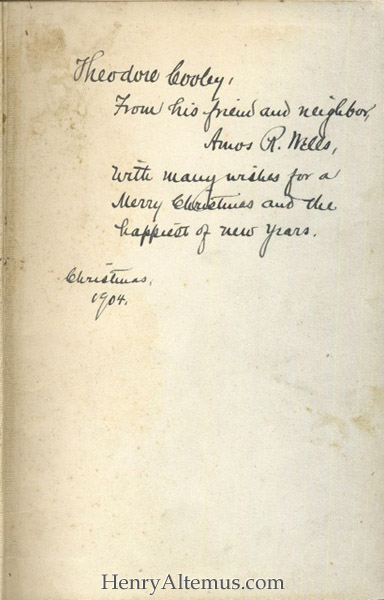 Theodore Cooley,
From his friend and neighbor,
Amos R. Wells,
With many wishes for a
Merry Christmas and the
happiest of new years.
Christmas,
1904.
HenryAltemus.com